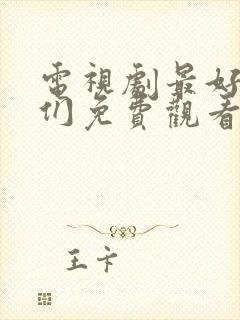 電視劇最好
们免費觀看
王卞